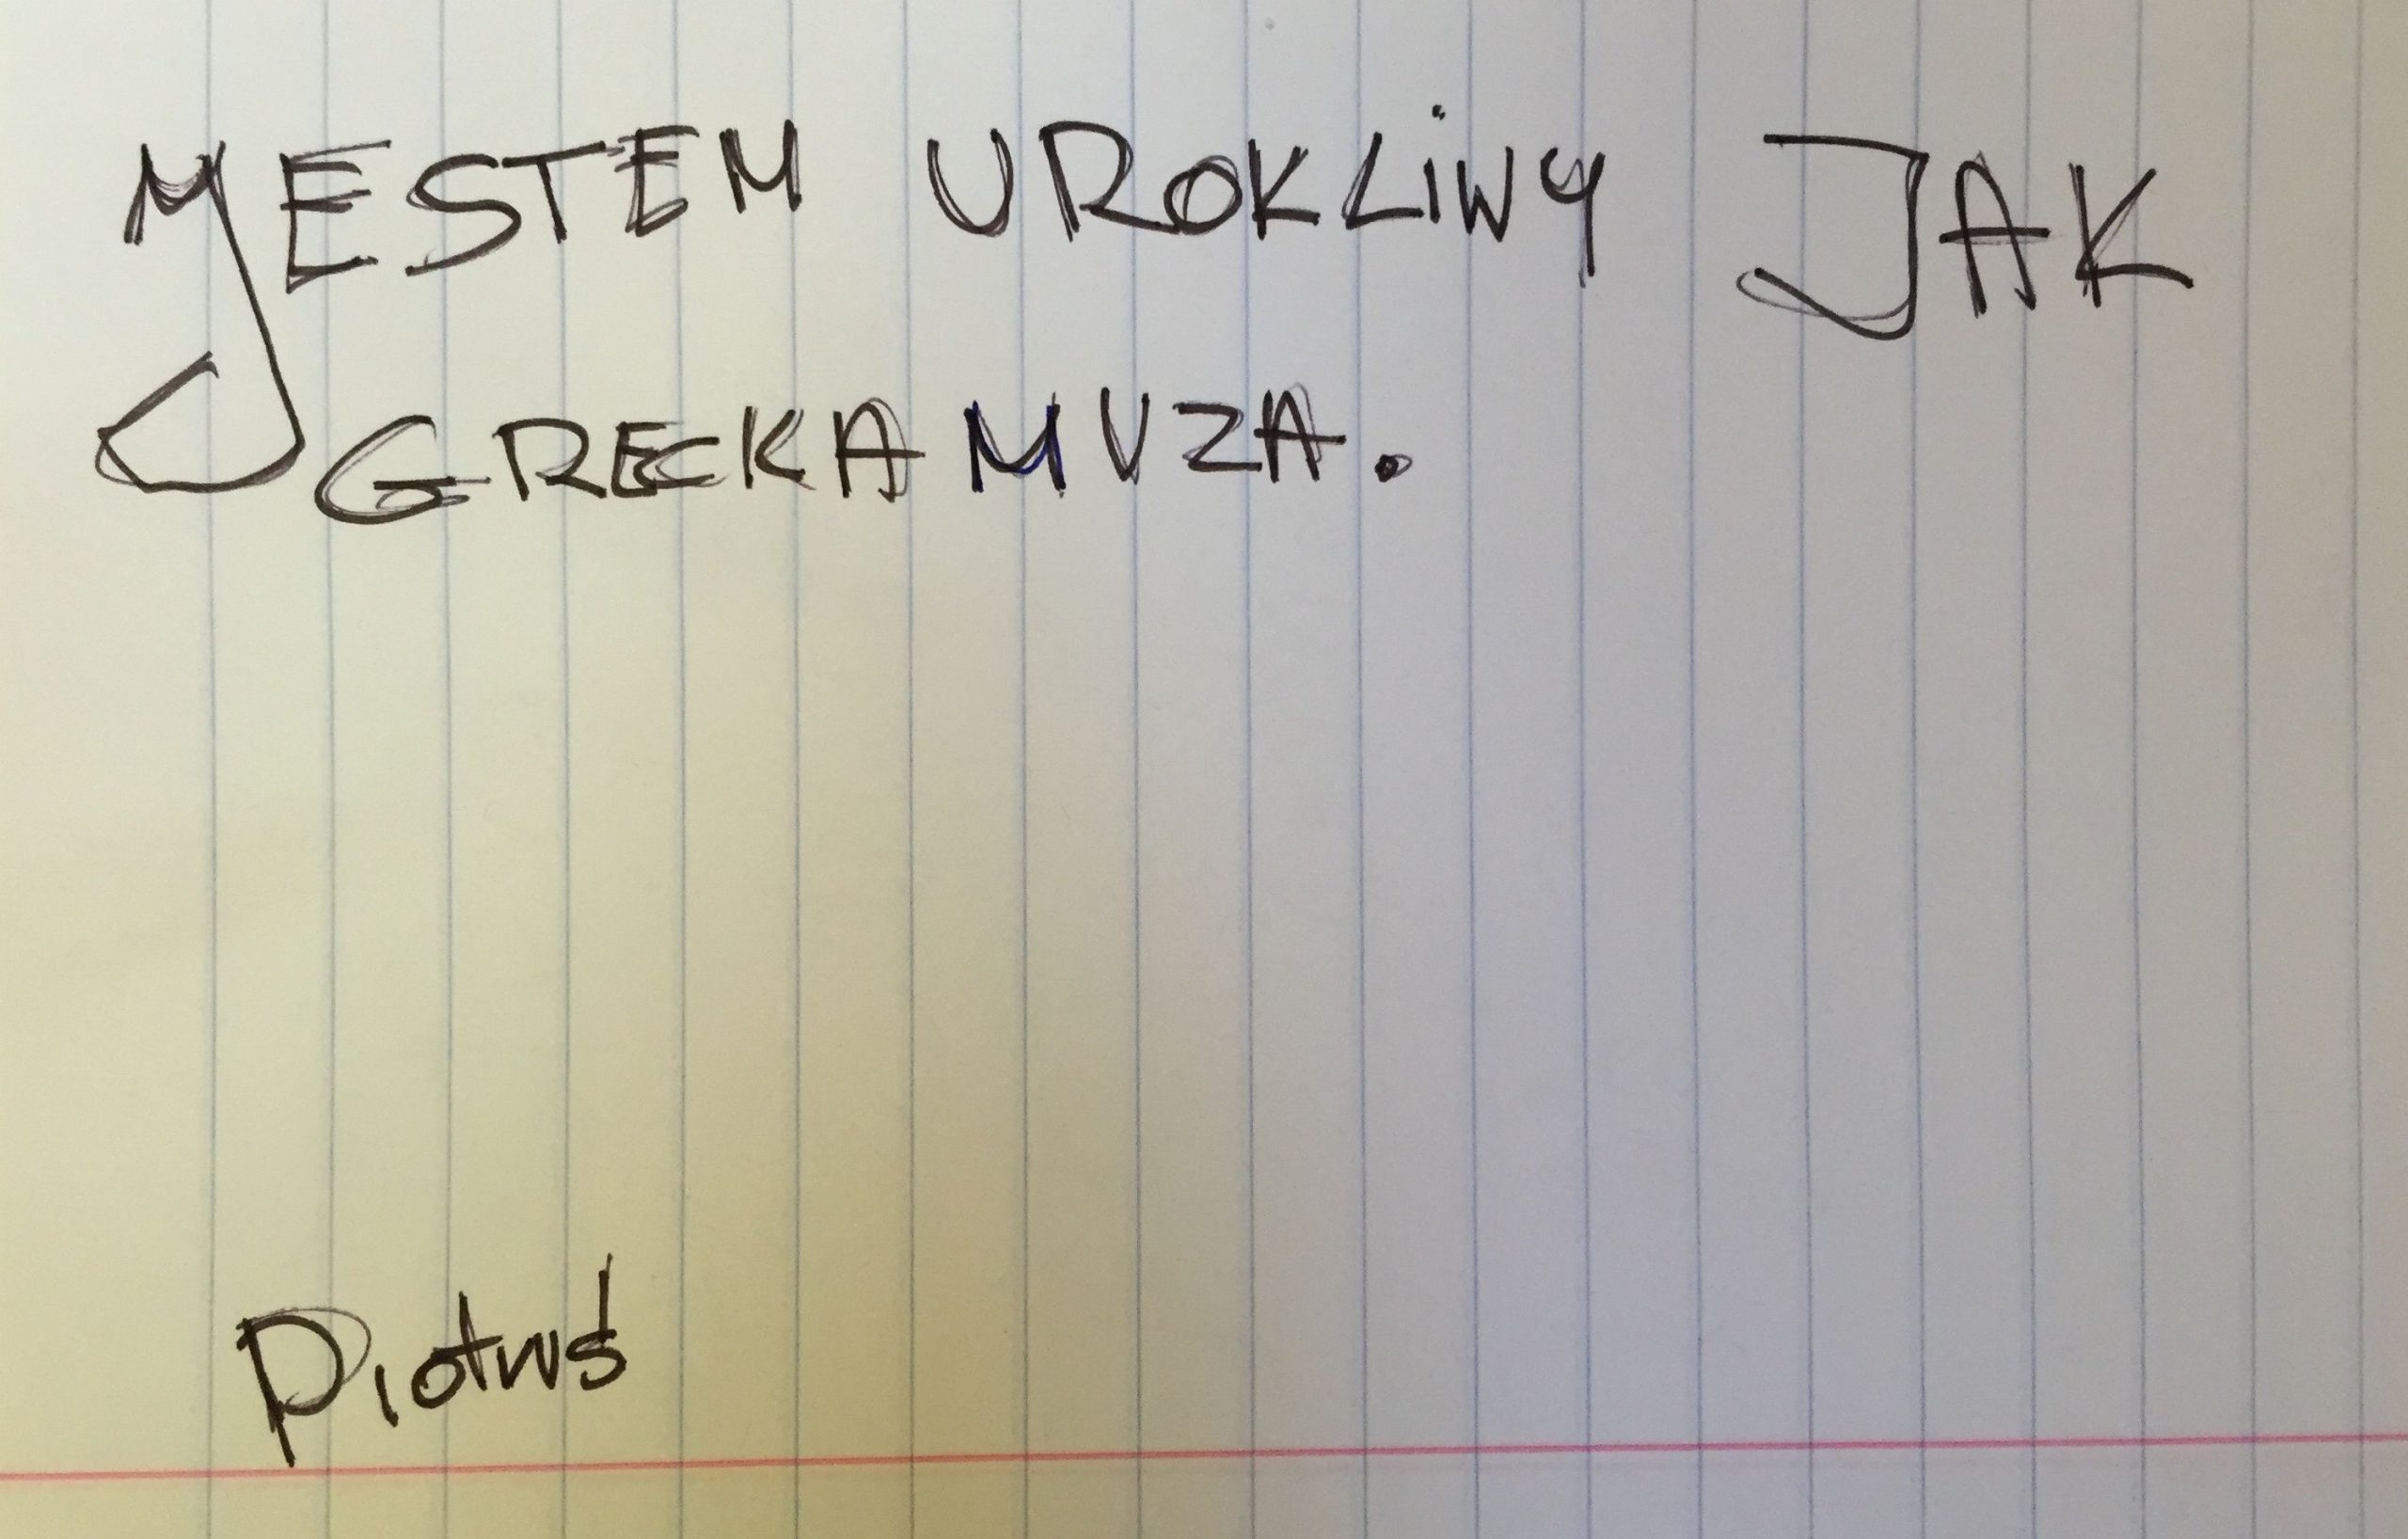 JESTEM UROKLiWY JAK
GRECKA MUZA.
Piotruś